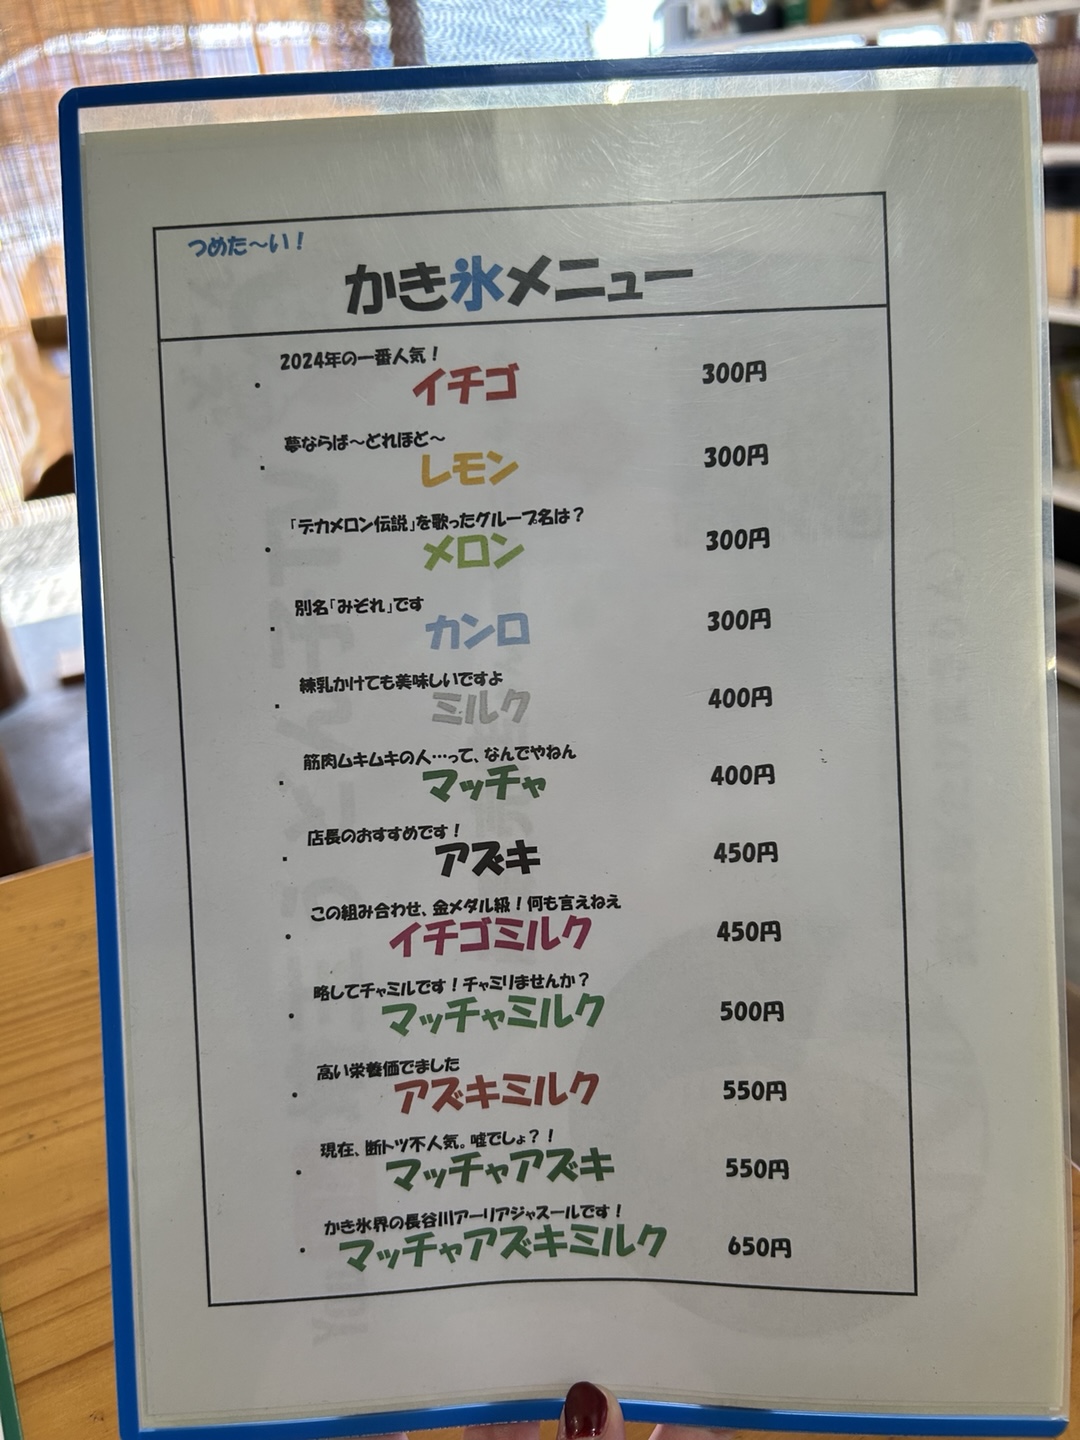 つめた〜い！
かき氷メニュー
2024年の一番人気！
・イチゴ 300円
夢ならば〜どれほど〜
・レモン 300円
「デカメロン伝説」を歌ったグループ名は？
・メロン 300円
別名「みぞれ」です
・カンロ 300円
練乳かけても美味しいですよ
・ミルク 400円
筋肉ムキムキの人…って、なんでやねん
・マッチャ 400円
店長のおすすめです！
・アズキ 450円
この組み合わせ、金メダル級！何も言えねえ
・イチゴミルク 450円
略してチャミルです！チャミりませんか？
・マッチャミルク 500円
高い栄養価でました
・アズキミルク 550円
現在、断トツ不人気。嘘でしょ？！
・マッチャアズキ 550円
かき氷界の長谷川アーリアジャスールです！
・マッチャアズキミルク 650円